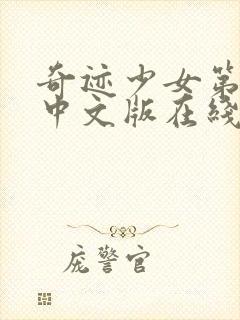 奇迹少女第
中文版在綫
庞警官